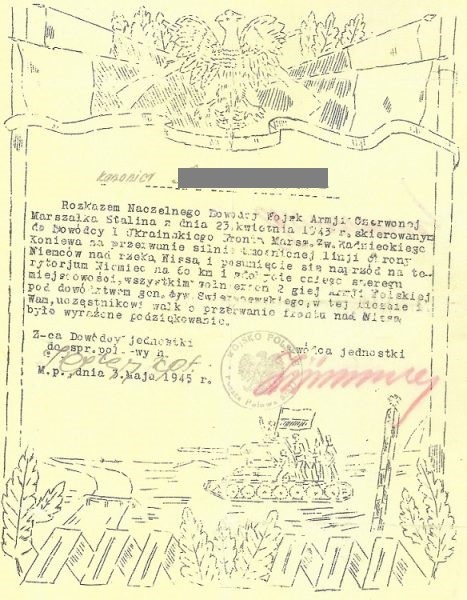 Rozkazem Naczelnego Dowódcy Wojsk Armji Czerwonej
Marszałka Stalina z dnia 23 kwietnia 1945 r, skierowanym
do Dowódcy I Ukrainskiego Frontu Marsz. Zw. Radzieckiego
Koniewa na przerwanie silnie umocnionej linji obrony
Niemców nad rzeką Nissą i posunięcie się naprzód na te-
rytorjum Niemiec na 60 km i zdobycie całego szeregu
miejscowości, wszystkim żołnierzom 2 giej Armji Polskiej
pod dowództwem gen. dyw. Swierczewskiego, w tej liczbie i
Wam, uczestnikowi walk o przerwanie frontu nad Nissą
było wyrażone podziękowanie.
Z-ca Dowódcy jednostki
do spr. pol.-wych.
Dowódca jednostki
WOJSKO POLSKIE
M.p., dnia 3 Maja 1945 r.